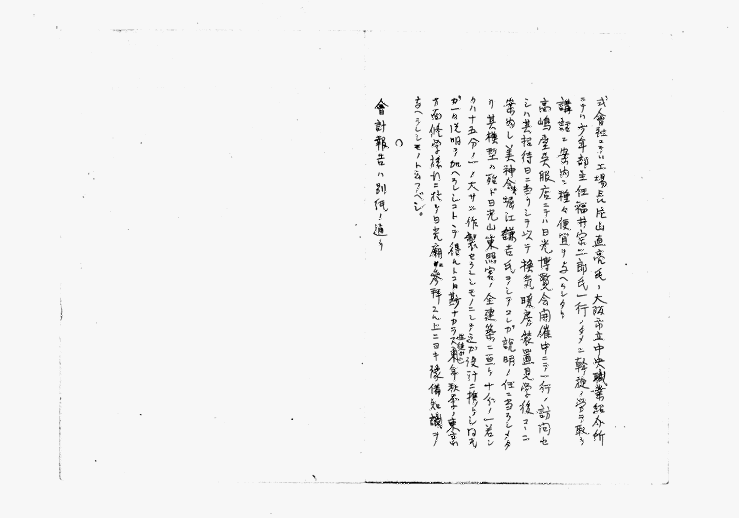 式會社ニテハ工場長片山直亮氏、大阪市立中央職業紹介所
ニテハ少年部主任福井宗二郎氏一行ノタメニ斡旋ノ労ヲ取ラ
講話ニ案内ニ種々便宜ヲ与ヘラレタリ
高嶋屋呉服店ニテハ日光博覧会開催中ニテ一行ノ訪問セ
シハ其招待日ニ当リシヲ以テ換気暖房装置見学後コレニ
案内シ美神会堀江謙吉氏ヲシテコレガ説明ノ任ニ当ラシメタ
リ其模型ハ殆ド日光山東照宮ノ全建築ニ亘リ十分ノ一若シ
クハ十五分ノ一ノ大サニ作製セラレシモノニシテ
ガ一々説明ヲ加ヘラレシコトトテ得ルトコロ尠ナカラズ東年秋季ノ東京
方面修学旅行ニ於ケル日光廟参拝ノ上ニヨキ豫備知識ヲ
与ヘラレシモノト云フベシ。
○
會計報告ハ別紙ノ通リ